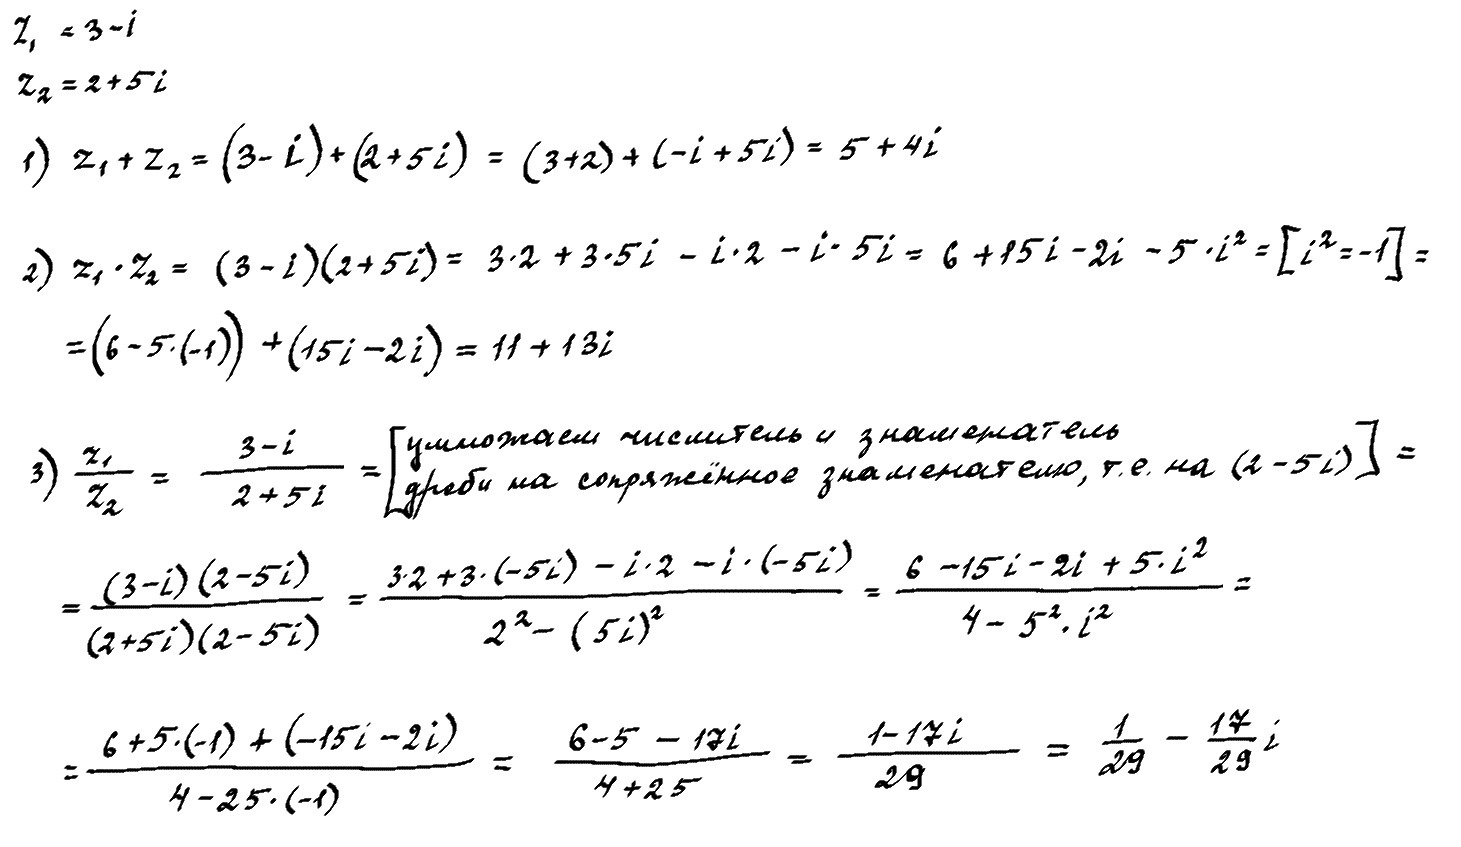 z₁ = 3-i
z₂ = 2+5i
1) z₁ + z₂ = (3-i)+(2+5i) = (3+2)+(-i+5i) = 5+4i
2) z₁ · z₂ = (3-i)(2+5i) = 3·2 + 3·5i - i·2 - i·5i = 6 + 15i - 2i - 5·i² = [i² = -1] =
= (6-5·(-1)) + (15i-2i) = 11 + 13i
3) z₁/z₂ = (3-i)/(2+5i) = [умножаем числитель и знаменатель
дроби на сопряжённое знаменателю, т.е. на (2-5i)] =
= ((3-i)(2-5i))/((2+5i)(2-5i)) = (3·2+3·(-5i) - i·2 - i·(-5i))/(2² - (5i)²) = (6 - 15i - 2i + 5·i²)/(4 - 5²·i²) =
= (6+5·(-1) + (-15i-2i))/(4-25·(-1)) = (6-5 - 17i)/(4+25) = (1-17i)/29 = 1/29 - 17/29 i